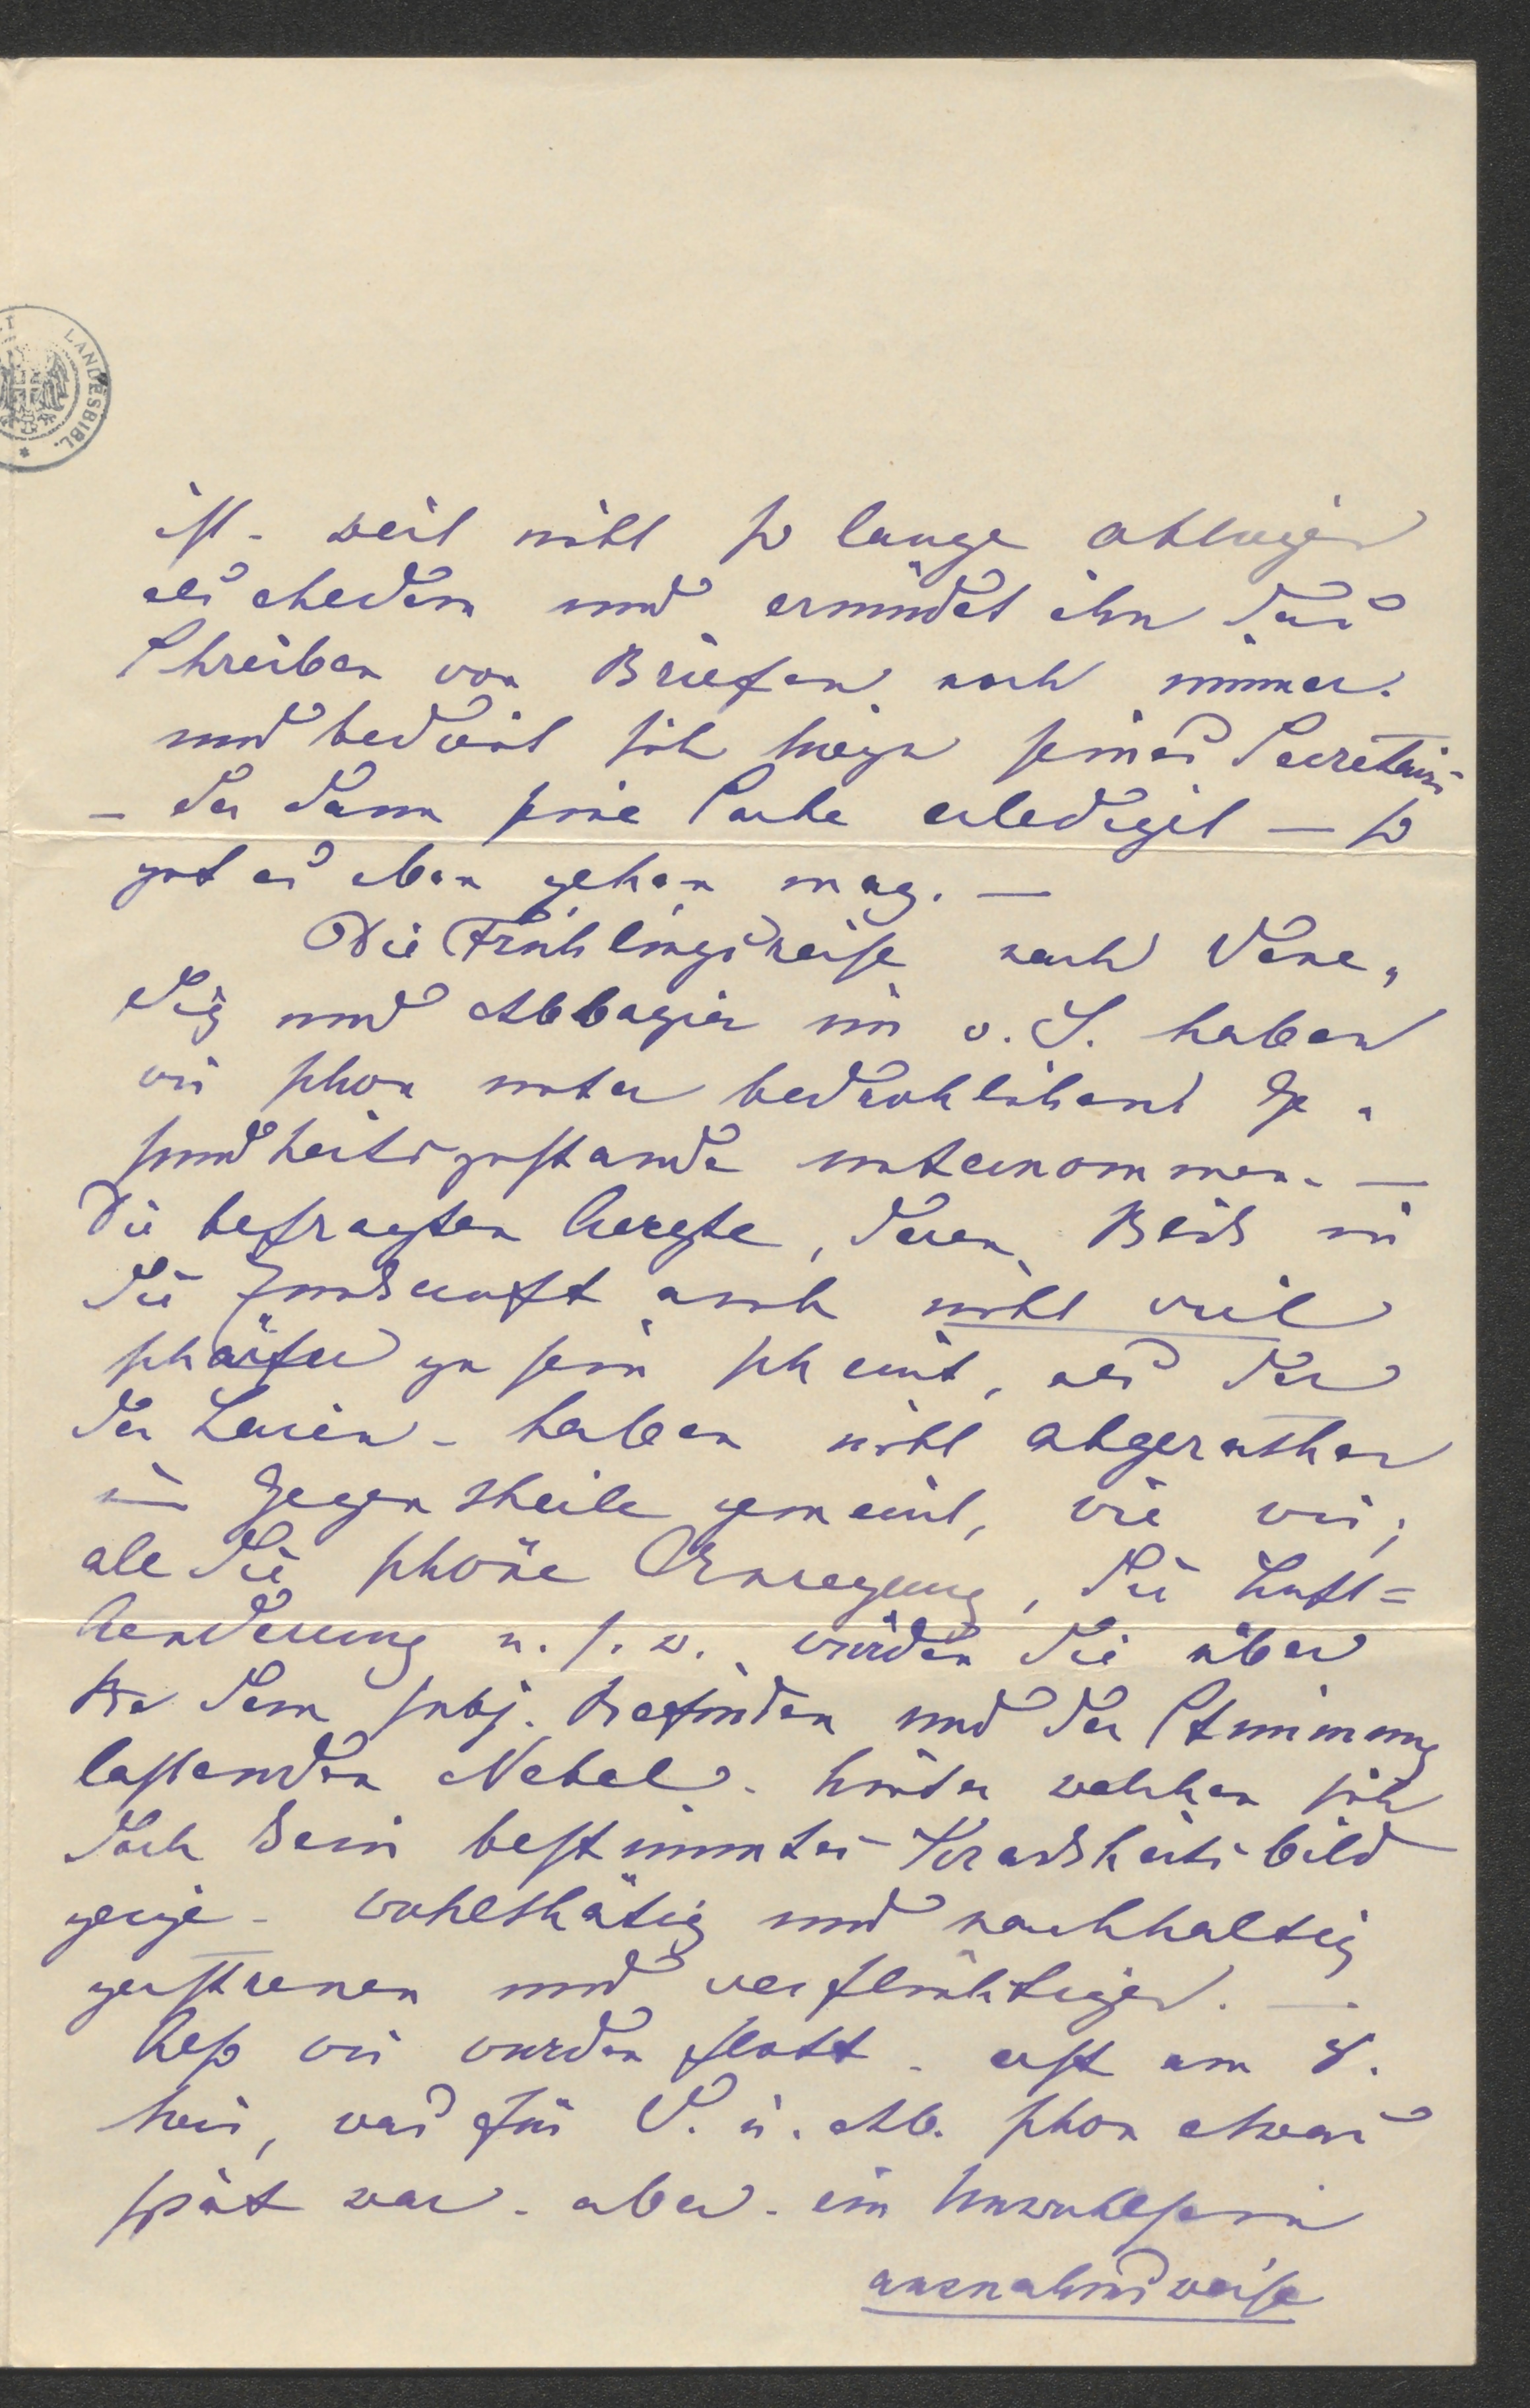 LANDESBIBL.
ist - weil nicht so lange
als ehedem und ermüdet ihn das
Schreiben von Briefen noch immer.
und bedient sich hiezu seines Secretairs
- der dann seine Sache erledigt — so
gut es eben gehen mag. —
Die Frühlingsreise nach Vene„
dig und Abbazia im v. J. haben
wir schon unter bedrohlichem Ge„
sundheitszustande unternommen. —
Die befragten Aerzte, deren Blick in
die Zukunft auch nicht viel
schärfer zu sein scheint, als der
der Laien - haben nicht abgerathen
im Gegentheile gemeint, wie wir,
alle die schöne Anregung, die Luft=
Aenderung u. s. w. würden die über
dem subj. Befinden und der Stimmung
lastenden Nebel - hinter welchen sich
doch kein bestimmtes Krankheitsbild
zeige - wohlthätig und nachhaltig
zerstreuen und verflüchtigen. —.
Also wir wurden flott - erst am 8.
Mai, was für V. u. Ab. schon etwas
spät war - aber - ein Unwohlsein
ausnahmsweise